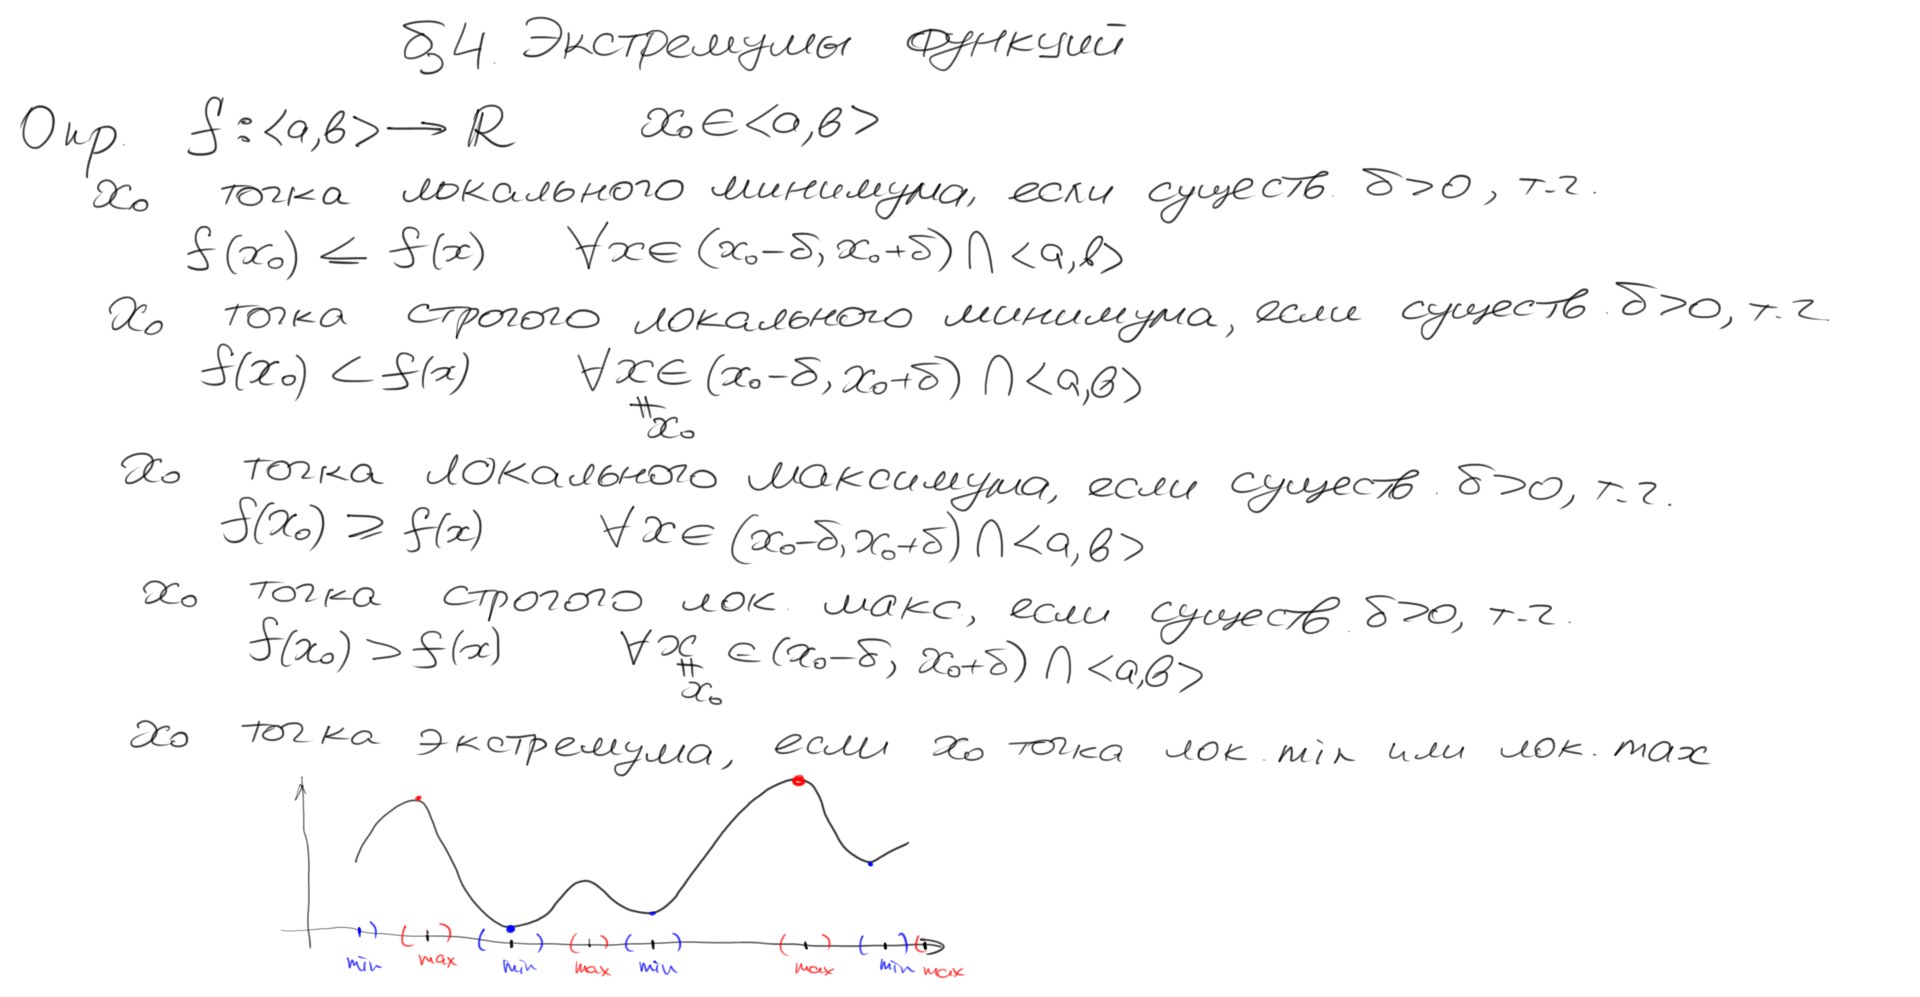 §4. Экстремумы функций
Опр. f:<a,b>→ℝ x₀∈<a,b>
x₀ точка локального минимума, если существ. δ>0, т.ч.
f(x₀) ≤ f(x) ∀x∈(x₀-δ, x₀+δ)∩<a,b>
x₀ точка строгого локального минимума, если существ. δ>0, т.ч.
f(x₀) < f(x) ∀x∈(x₀-δ, x₀+δ)∩<a,b>
≠
x₀
x₀ точка локального максимума, если существ. δ>0, т.ч.
f(x₀) ⩾ f(x) ∀x∈(x₀-δ, x₀+δ)∩<a,b>
x₀ точка строгого лок. макс, если существ. δ>0, т.ч.
f(x₀) > f(x) ∀x ∈(x₀-δ, x₀+δ)∩<a,b>
≠
x₀
x₀ точка экстремума, если x₀ точка лок. min или лок. max
min max min max min max min max